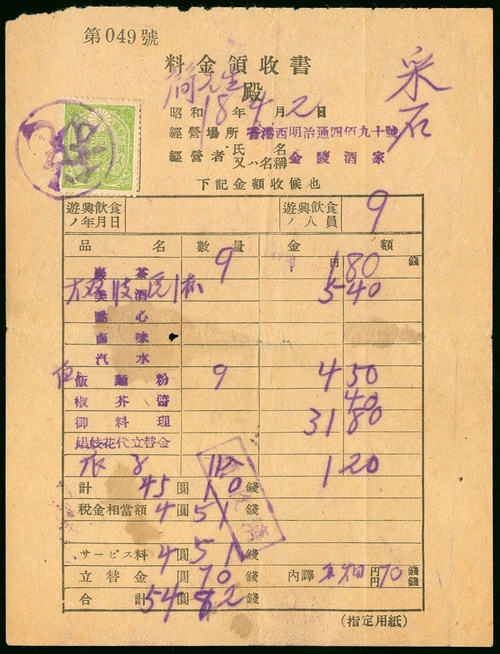 第049號
料金領收書
殿
昭和18年4月2日
經營場所 香港西明治通四佰九十號
經營者 氏名又ハ名稱 金陵酒家
下記金額收候也
采石
遊興飲食ノ年月日
遊興飲食ノ人員 9
品名 數量 金額
茶 9 1円80錢
美酒 5 40
點心
鹵味
汽水
飯麵粉 9 4 50
椒芥醬 40
御料理 31 80
娼妓花代立替金
1 20
計 45圓10錢
稅金相當額 4圓51錢
サービス料 4圓51錢
立替金 圓70錢 內譯 円70錢
円 錢
合計 54圓82錢
(指定用紙)